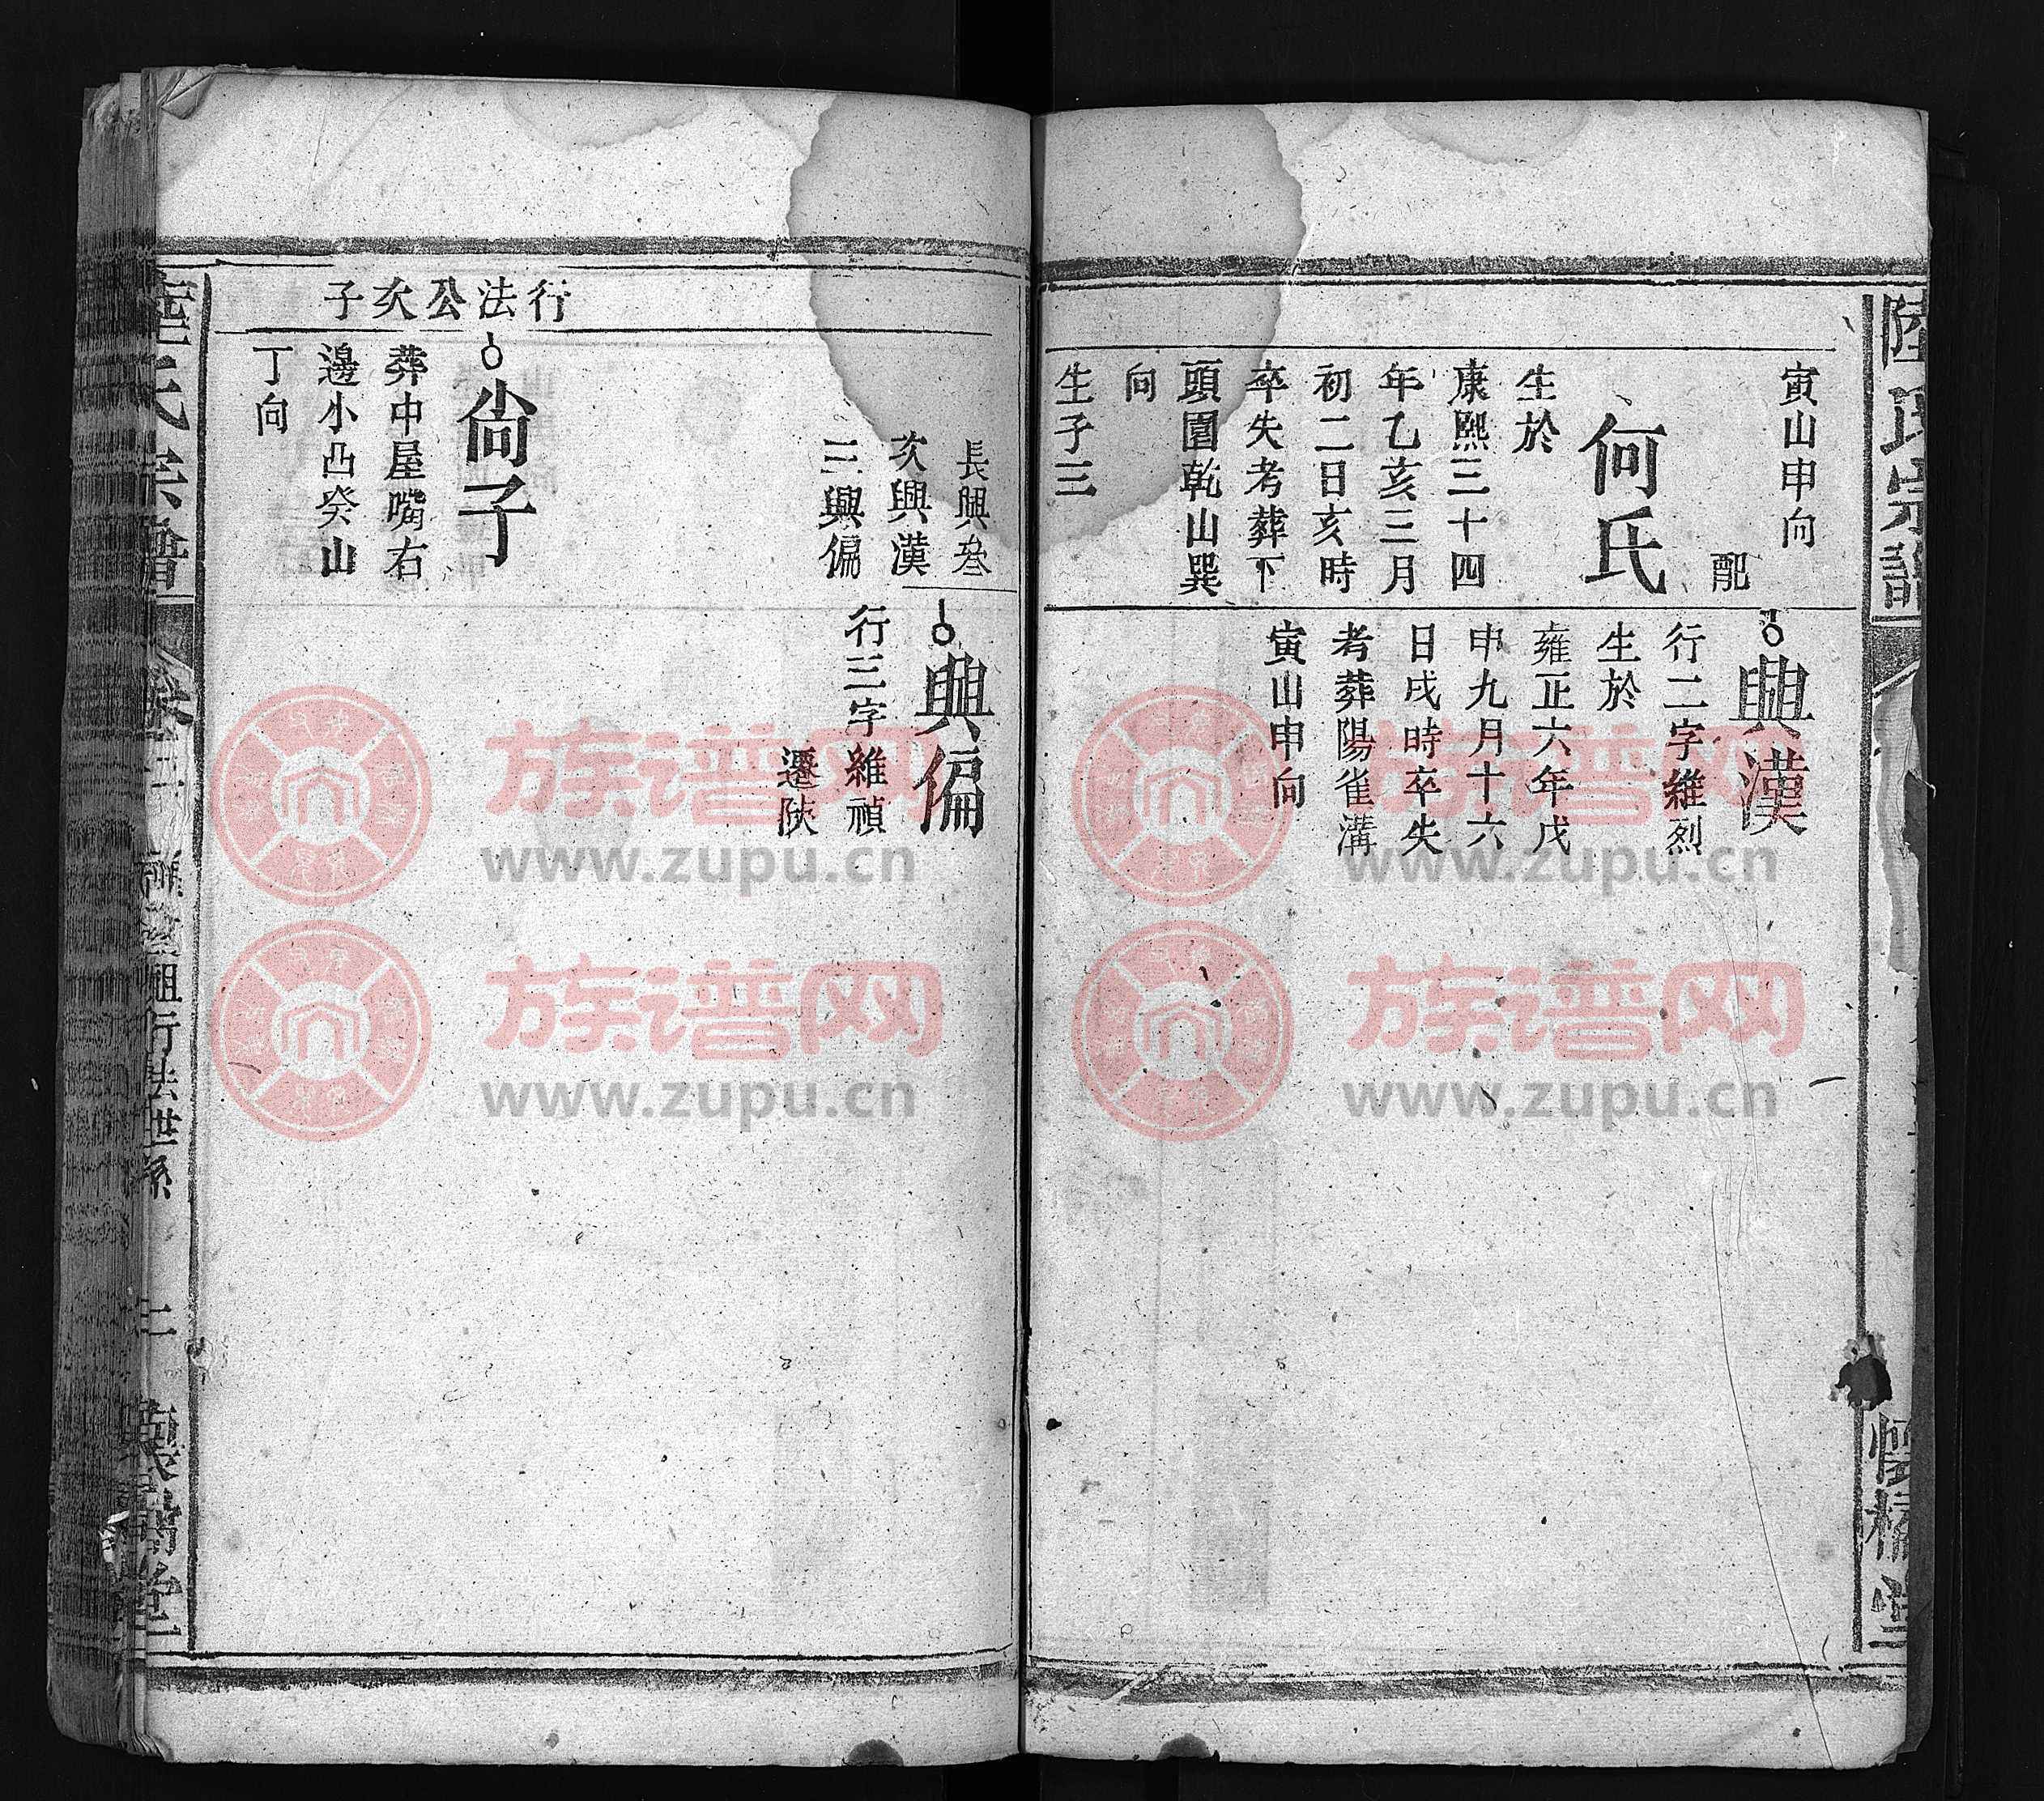 陸氏宗譜
懷橘堂
寅山申向
配
何氏
生於
康熙三十四
年乙亥三月
初二日亥時
卒失考葬下
頭園乾山巽
向
生子三
興漢
行二字維烈
生於
雍正六年戊
申九月十六
日戌時卒失
考葬陽雀溝
寅山申向
長興叁
次興漢
三興偏
興偏
行三字維禎
遷陝
行法公次子
尙子
葬中屋嘴右
邊小凸癸山
丁向
陸氏宗譜
祖行法世系
懷橘堂
族谱网
www.zupu.cn
族谱网
www.zupu.cn
族谱网
www.zupu.cn
族谱网
www.zupu.cn